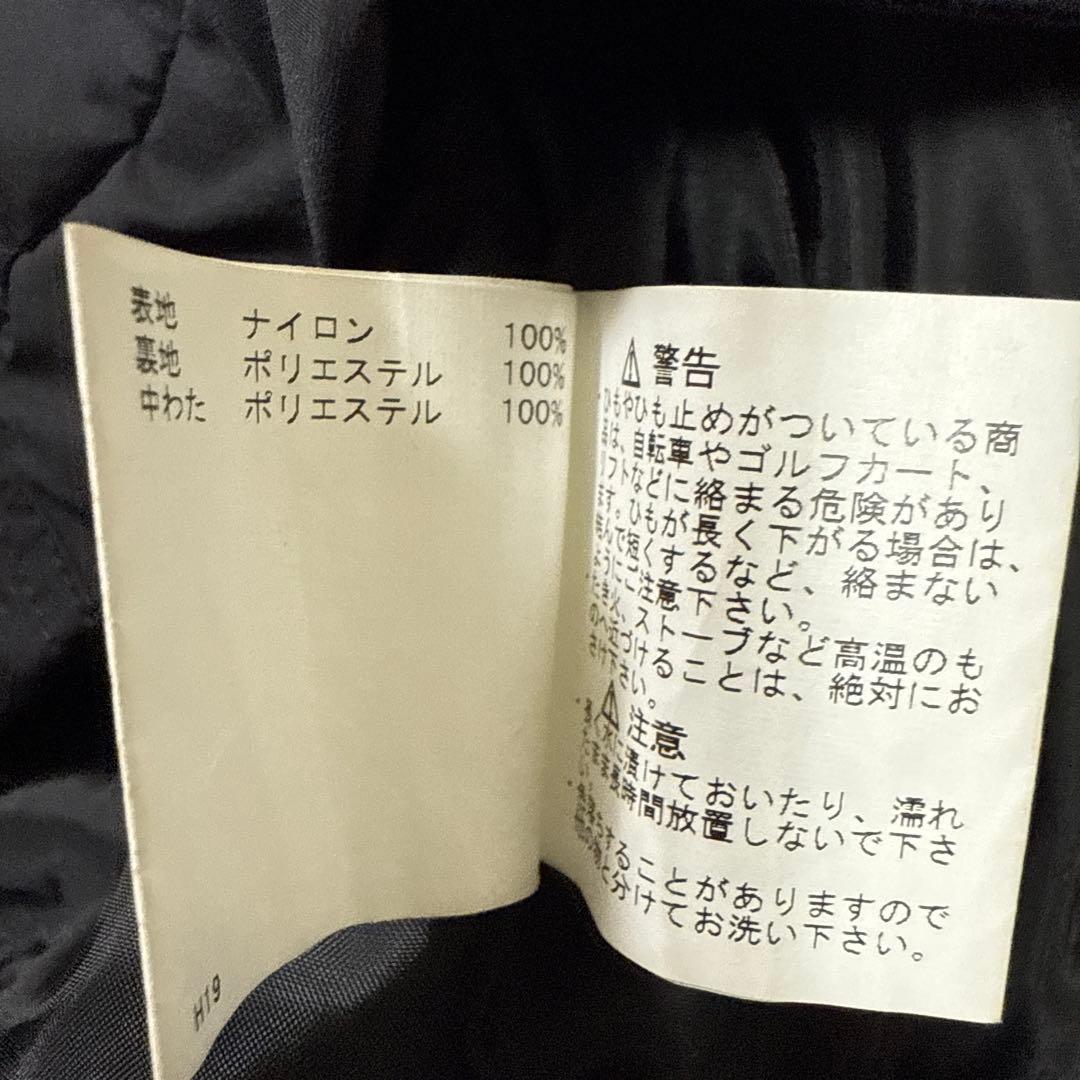 表地 ナイロン 100%
裏地 ポリエステル 100%
中わた ポリエステル 100%
H19
⚠ 警告
・ひもやひも止めがついている商
品は、自転車やゴルフカート、
リフトなどに絡まる危険があり
ます。ひもが長く下がる場合は、
結んで短くするなど、絡まない
ようにご注意下さい。
・たき火、ストーブなど高温のも
のへ近づけることは、絶対にお
さけ下さい。
⚠ 注意
・長く水に漬けておいたり、濡れ
たまま長時間放置しないで下さ
い。
・色落ちすることがありますので
他の物と分けてお洗い下さい。